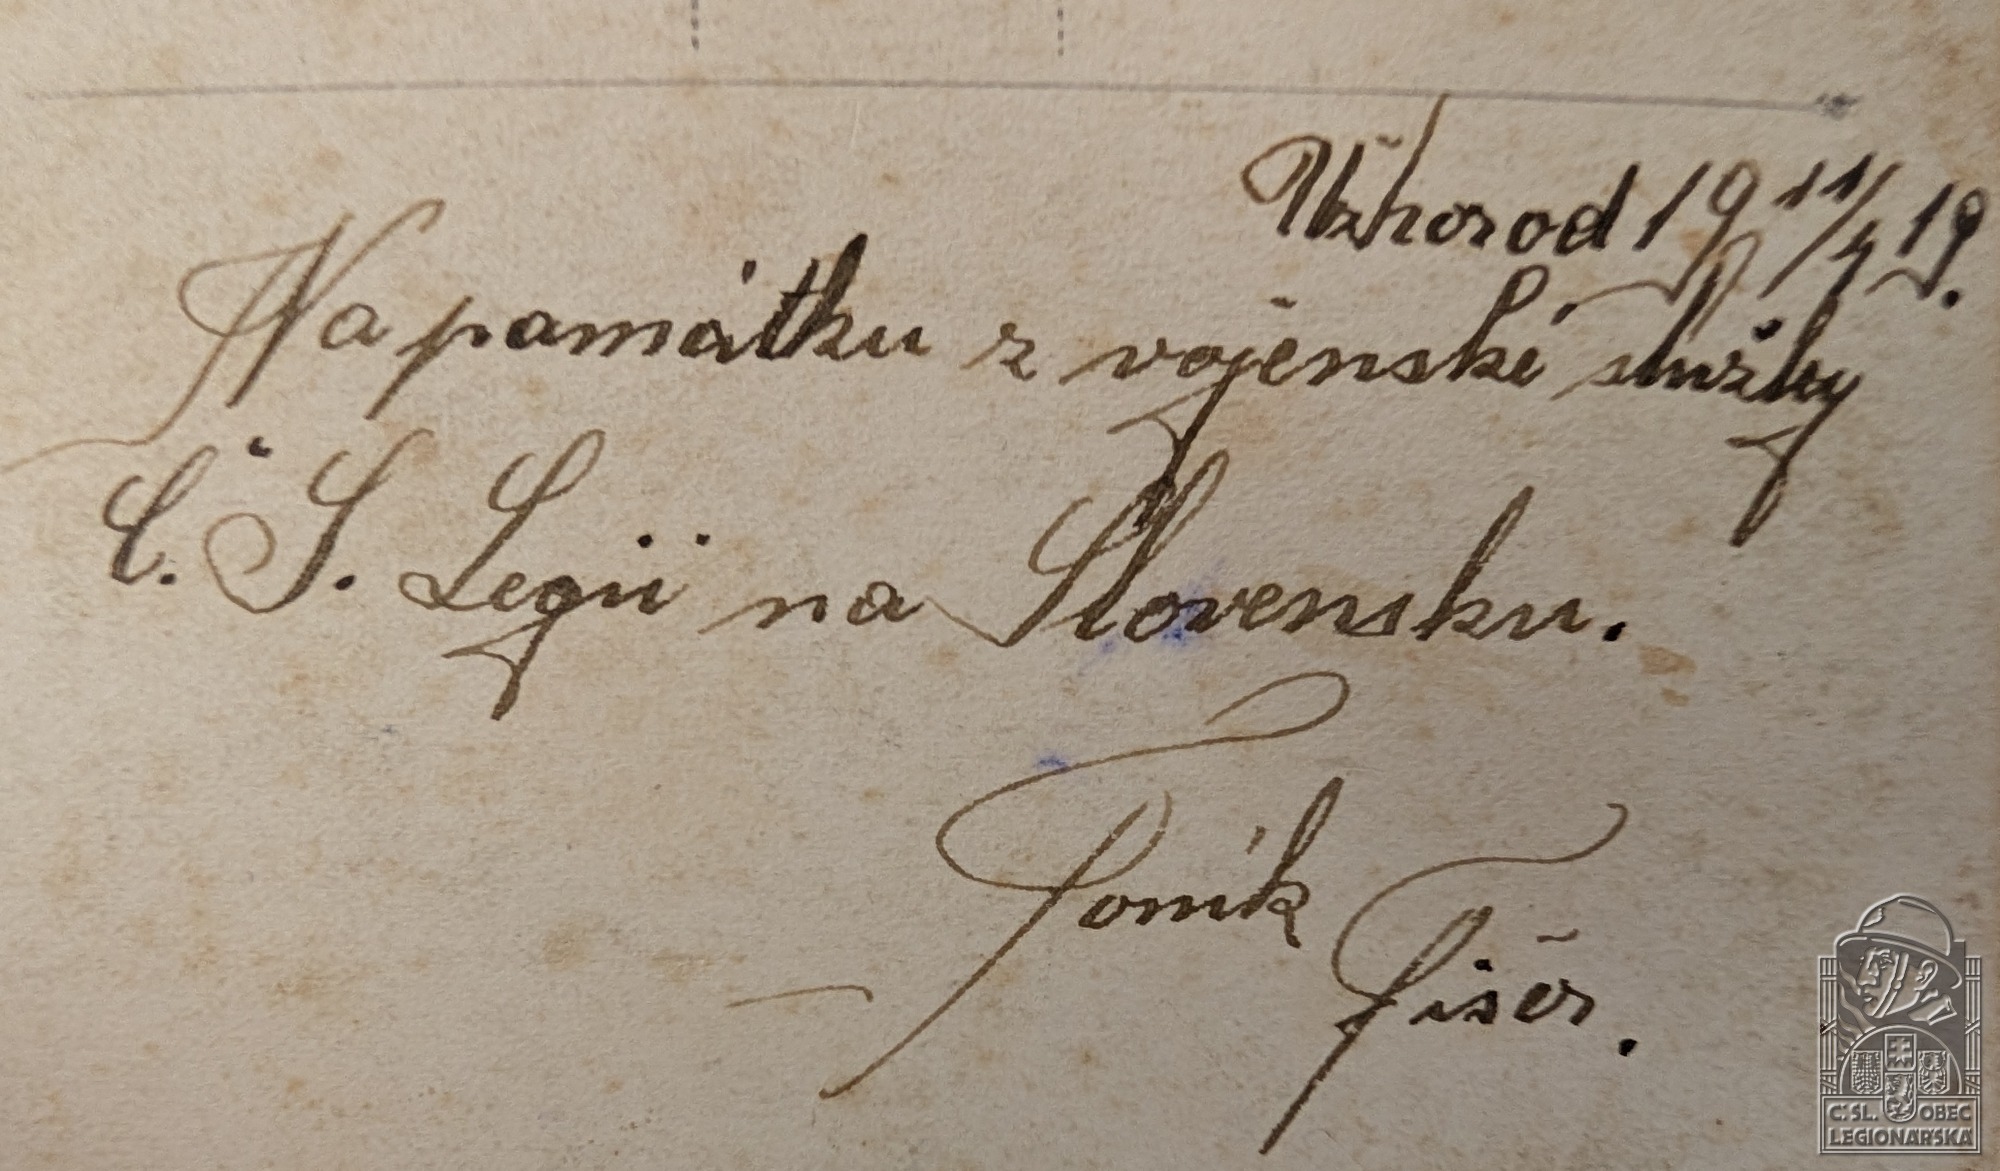 Užhorod 19 11/4 19.
Na památku z vojenské služby
Č. S. Legii na Slovensku.
Toník
Fišer.
Č. SL. OBEC
LEGIONÁŘSKÁ